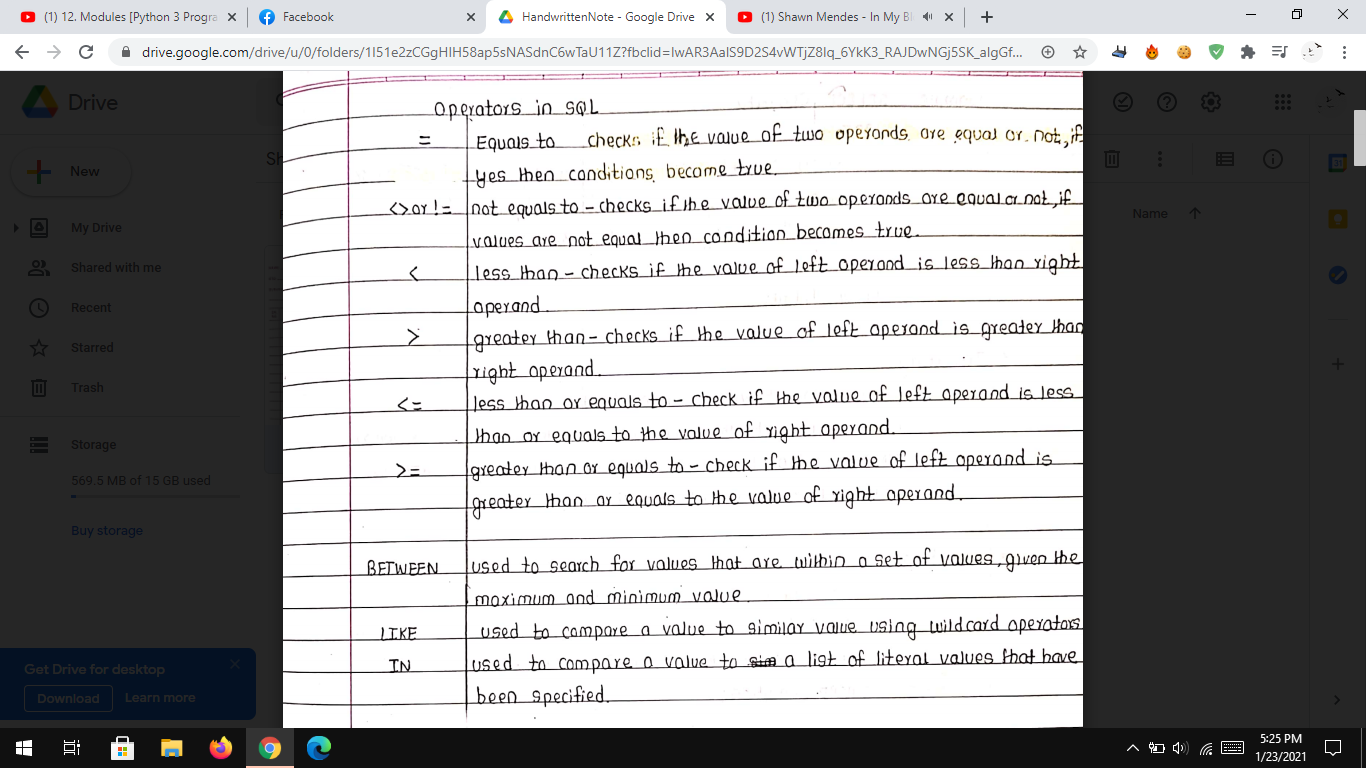 (1) 12. Modules [Python 3 Progra
Facebook
HandwrittenNote - Google Drive
(1) Shawn Mendes - In My Bl
drive.google.com/drive/u/0/folders/1I51e2zCGgHIH58ap5sNASdnC6wTaU11Z?fbclid=IwAR3AalS9D2S4vWTjZ8lq_6YkK3_RAJDwNGj5SK_algGf...
Drive
New
My Drive
Shared with me
Recent
Starred
Trash
Storage
569.5 MB of 15 GB used
Buy storage
Get Drive for desktop
Download Learn more
Sh
Name
Operators in SQL
= Equals to checks if the value of two operands are equal or not, if
yes then conditions become true.
<> or != not equals to - checks if the value of two operands are equal or not, if
values are not equal then condition becomes true.
< less than - checks if the value of left operand is less than right
operand.
> greater than - checks if the value of left operand is greater than
right operand.
<= less than or equals to - check if the value of left operand is less
than or equals to the value of right operand.
>= greater than or equals to - check if the value of left operand is
greater than or equals to the value of right operand.
BETWEEN used to search for values that are within a set of values, given the
maximum and minimum value.
LIKE used to compare a value to similar value using wildcard operators
IN used to compare a value to a list of literal values that have
been specified.
5:25 PM
1/23/2021